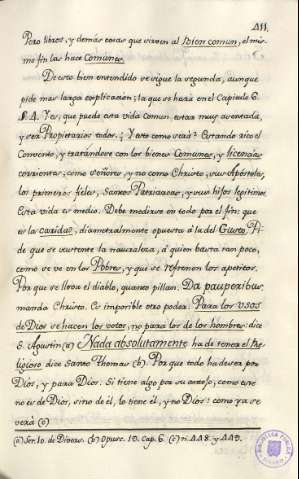 111.
Pero libros, y demás cosas que sirven al Bien comun, el mis-
mo fin las hace Comunes.
De esto bien entendido se sigue la segunda, aunque
pide mas larga explicacion; la que se hará en el Capitulo 6.
§. 4. Y es, que puede esta vida Comun estar muy asentada,
y ser Propietarios todos. ¿Y esto como será? Estando rico el
Convento, y tratandose con los bienes Comunes, y licencias
corrientes, como señores, y no como Christo, sus Apóstoles,
los primeros fieles, Santos Patriarcas, y sus hijos legitimos.
Esta vida es medio. Debe medirse en todo por el fin: que
es la caridad, diametralmente opuesta á la del Gusto. Pi-
de que se sustente la naturaleza, á quien basta tan poco,
como se ve en los Pobres, y que se refrenen los apetitos.
Por que se lleva el diablo, quanto pillan. Da pauperibus:
manda Christo. Es imposible otro poder. Para los usos
de Dios se hacen los votos, no para los de los hombres: dice
S. Agustin (a) Nada absolutamente ha de tener el Re-
ligioso dice Santo Thomas (b). Por que todo ha de ser por
Dios, y para Dios. Si tiene algo por su antojo, como este
no es de Dios, sino de él, lo tiene él, y no Dios: como ya se
verá (c)
(a) Ser. 10. de Divers. (b) Opusc. 10. Cap. 6. (c) n. 448. y 449.